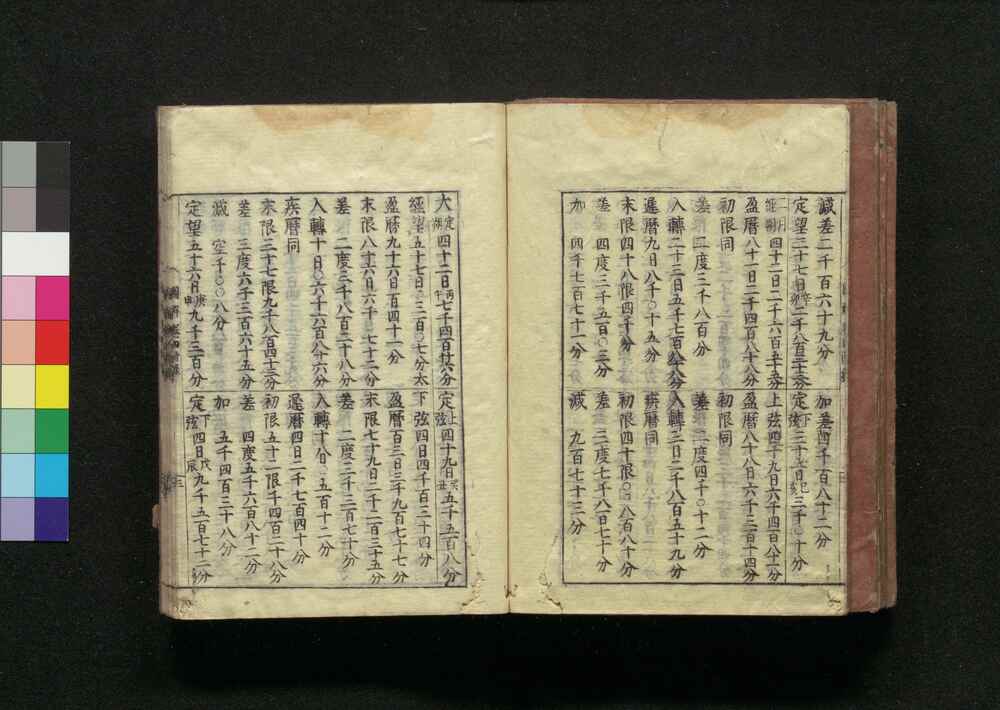 減差二千百六十九分
定望二十七日辛卯二千八百三十三分
二月經朔四十二日二千六百五十五分
盈曆八十一日二千四百八十八分
初限同
差二度三千八百分
入轉二十三日五千七百八十八分
遲曆九日八千〇十五分
末限四十八限四千分
差四度三千五百〇三分
加四千七百七十一分
加差四千百八十二分
定下弦三十五日己亥三千〇十分
上弦四十九日六千四百八十一分
盈曆八十八日六千三百十四分
初限同
差二度四千〇十二分
入轉三日二千八百五十九分
疾曆同
初限四十限〇八百八十分
差三度七千八百七十分
減九百七十三分
大定朔四十二日丙午七千四百廿六分
經望五十七日〇三百〇七分太
盈曆九十六日百四十一分
末限八十六日六千〇七十二分
差二度三千八百二十八分
入轉十日〇六千六百八十六分
疾曆同
末限三十七限九千八百四十三分
差三度六千三百六十五分
減空千〇〇八分
定望五十六日庚申九千三百分
定上弦四十九日癸丑五千五百八分
下弦四日四千百三十四分
盈曆百三日三千九百七十七分
末限七十九日二千二百三十五分
差二度三千三百七十分
入轉十八日〇五百十二分
遲曆四日二千七百四十分
初限五十二限千四百二十八分
差四度五千六百八十二分
加五千四百三十八分
定下弦四日戊辰九千五百七十二分